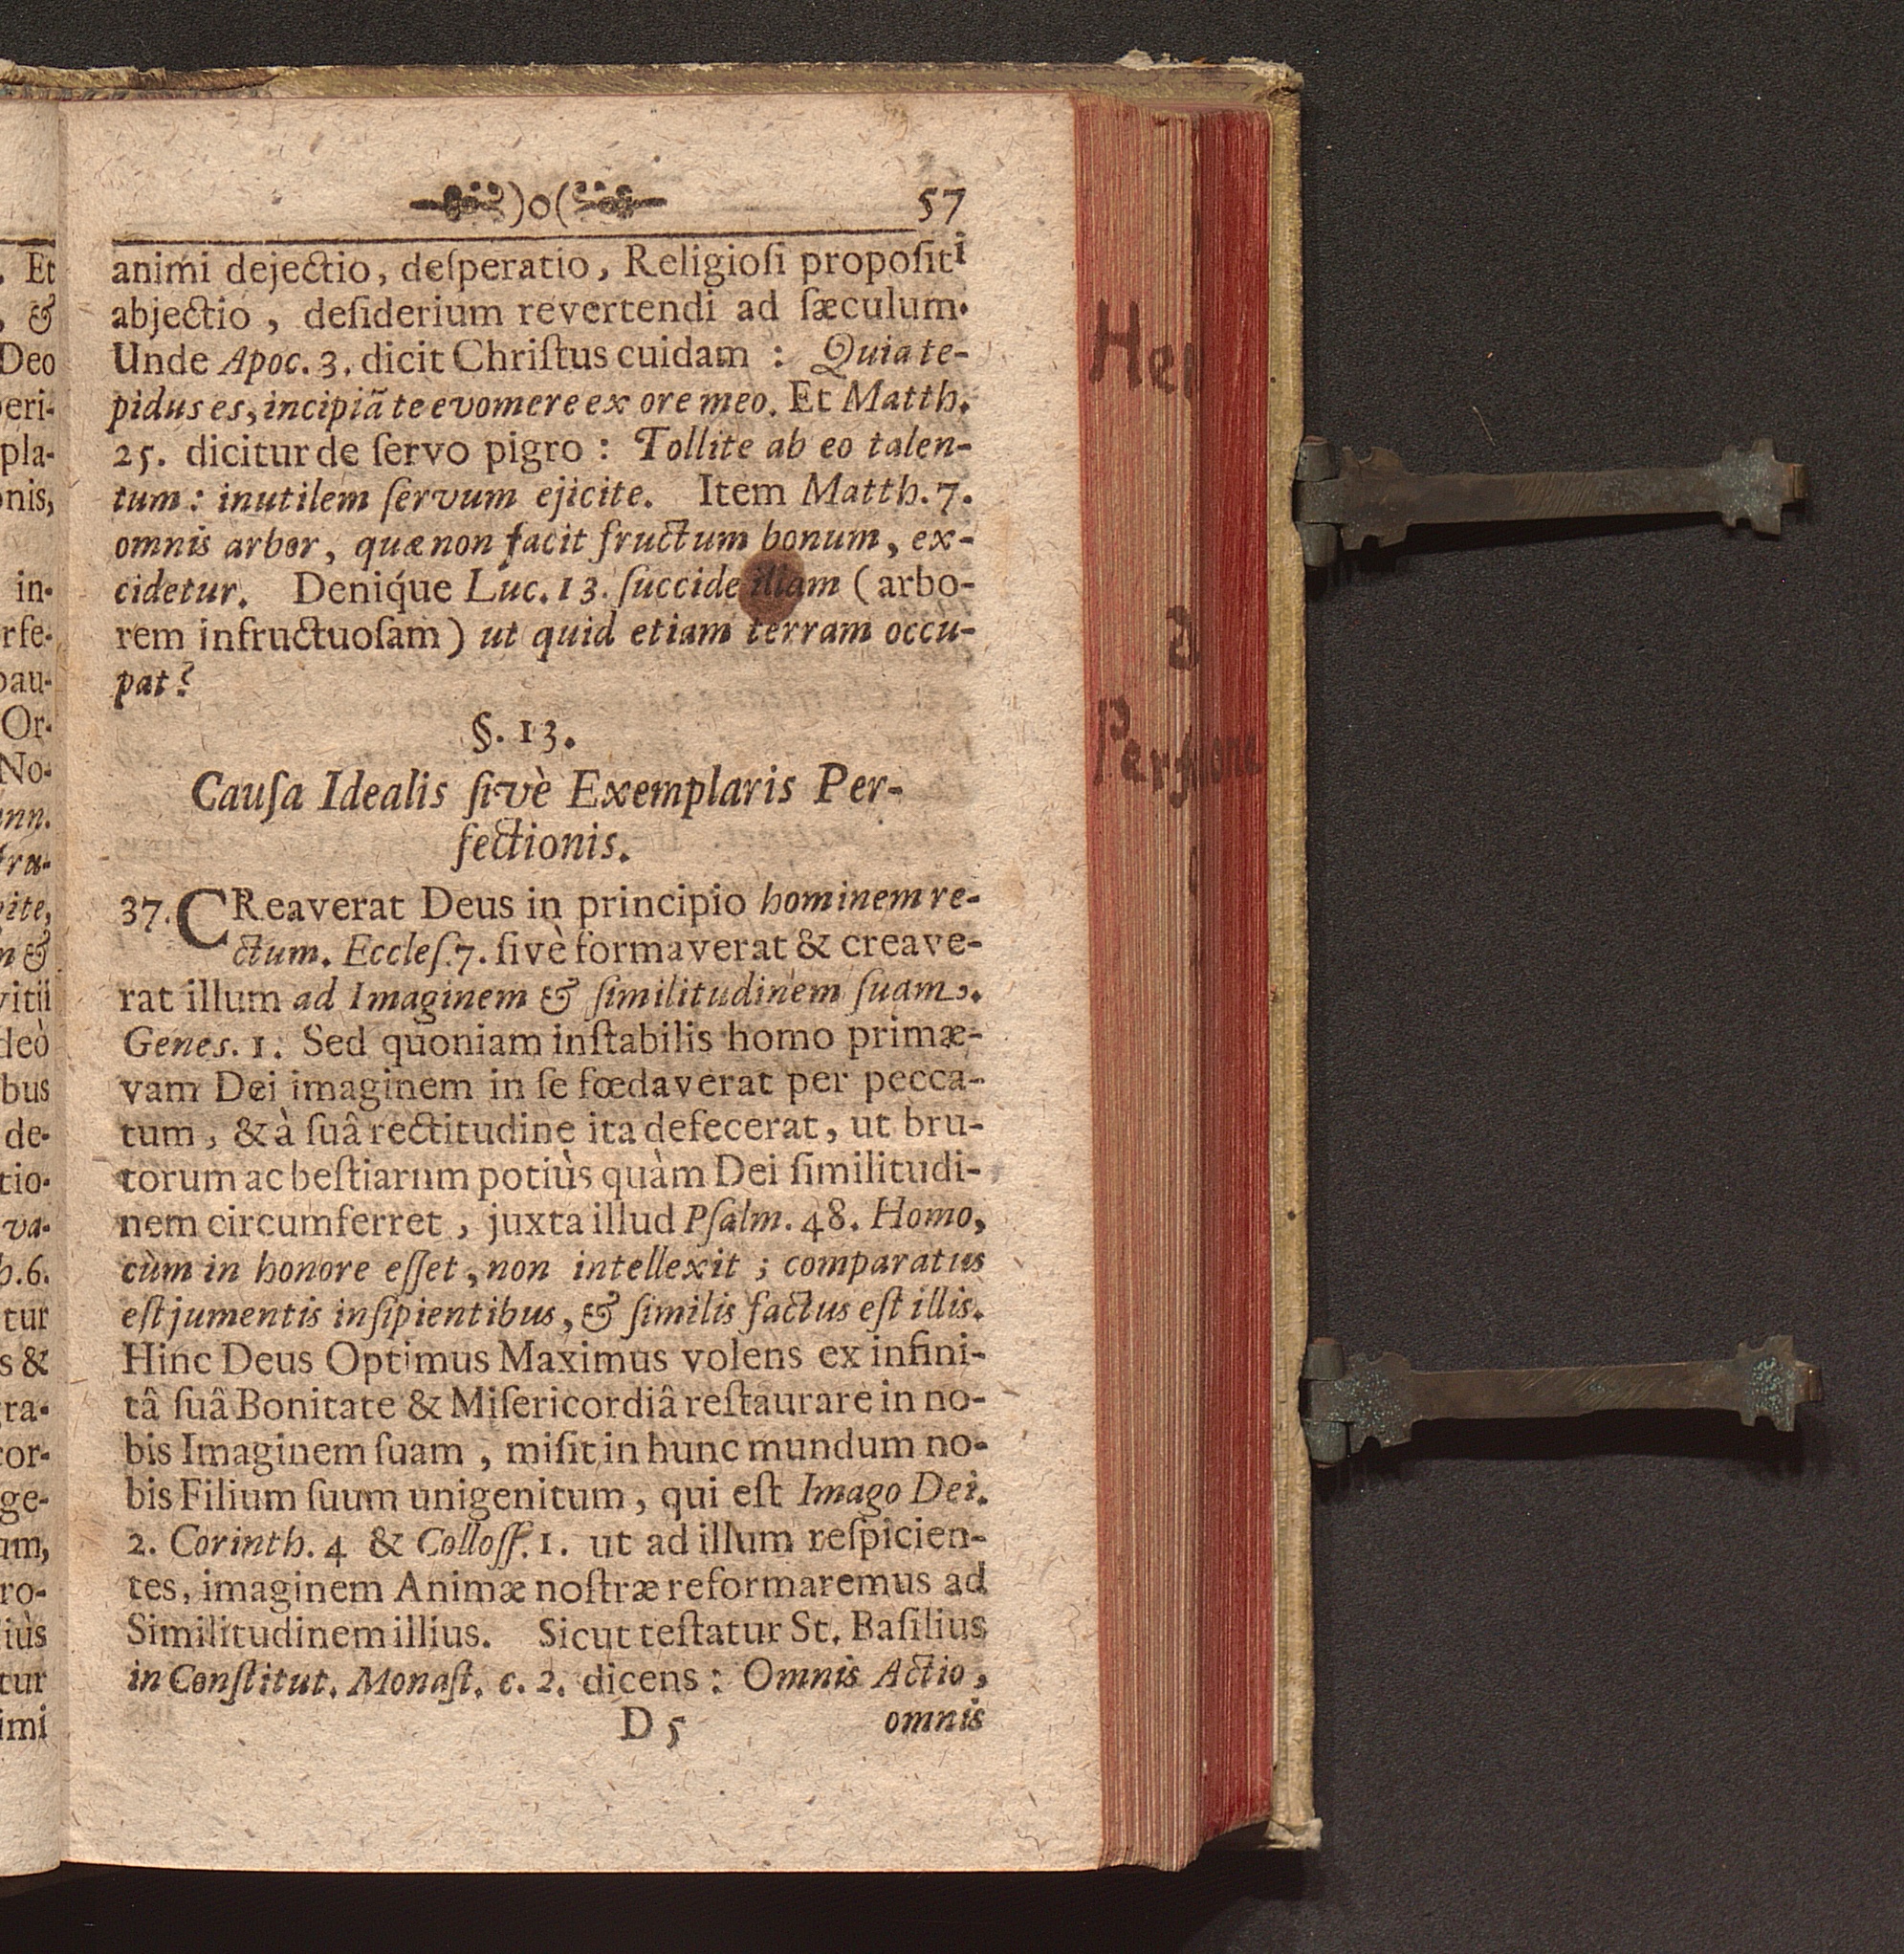 )o( 57
animi dejectio, deſperatio, Religioſi propoſiti
abjectio, deſiderium revertendi ad ſæculum.
Unde Apoc. 3. dicit Chriſtus cuidam : Quia te-
pidus es, incipiã te evomere ex ore meo. Et Matth.
25. dicitur de ſervo pigro : Tollite ab eo talen-
tum : inutilem ſervum ejicite. Item Matth. 7.
omnis arbor, quæ non facit fructum bonum, ex-
cidetur. Deniq́ue Luc. 13. ſuccide illam ( arbo-
rem infructuoſam ) ut quid etiam terram occu-
pat?
§. 13.
Cauſa Idealis ſivè Exemplaris Per-
fectionis.
37. CReaverat Deus in principio hominem re-
ctum. Eccleſ. 7. ſivè formaverat & creave-
rat illum ad Imaginem & ſimilitudinem ſuam.
Genes. 1. Sed quoniam inſtabilis homo primæ-
vam Dei imaginem in ſe fœdaverat per pecca-
tum, & à ſuâ rectitudine ita defecerat, ut bru-
torum ac beſtiarum potiùs quàm Dei ſimilitudi-
nem circumferret, juxta illud Pſalm. 48. Homo,
cùm in honore eſſet, non intellexit ; comparatus
eſt jumentis inſipientibus, & ſimilis factus eſt illis.
Hinc Deus Optimus Maximus volens ex infini-
tâ ſuâ Bonitate & Miſericordiâ reſtaurare in no-
bis Imaginem ſuam, miſit in hunc mundum no-
bis Filium ſuum unigenitum, qui eſt Imago Dei.
2. Corinth. 4 & Colloſſ. 1. ut ad illum reſpicien-
tes, imaginem Animæ noſtræ reformaremus ad
Similitudinem illius. Sicut teſtatur St. Baſilius
in Conſtitut. Monaſt. c. 2. dicens : Omnis Actio,
D 5 omnis